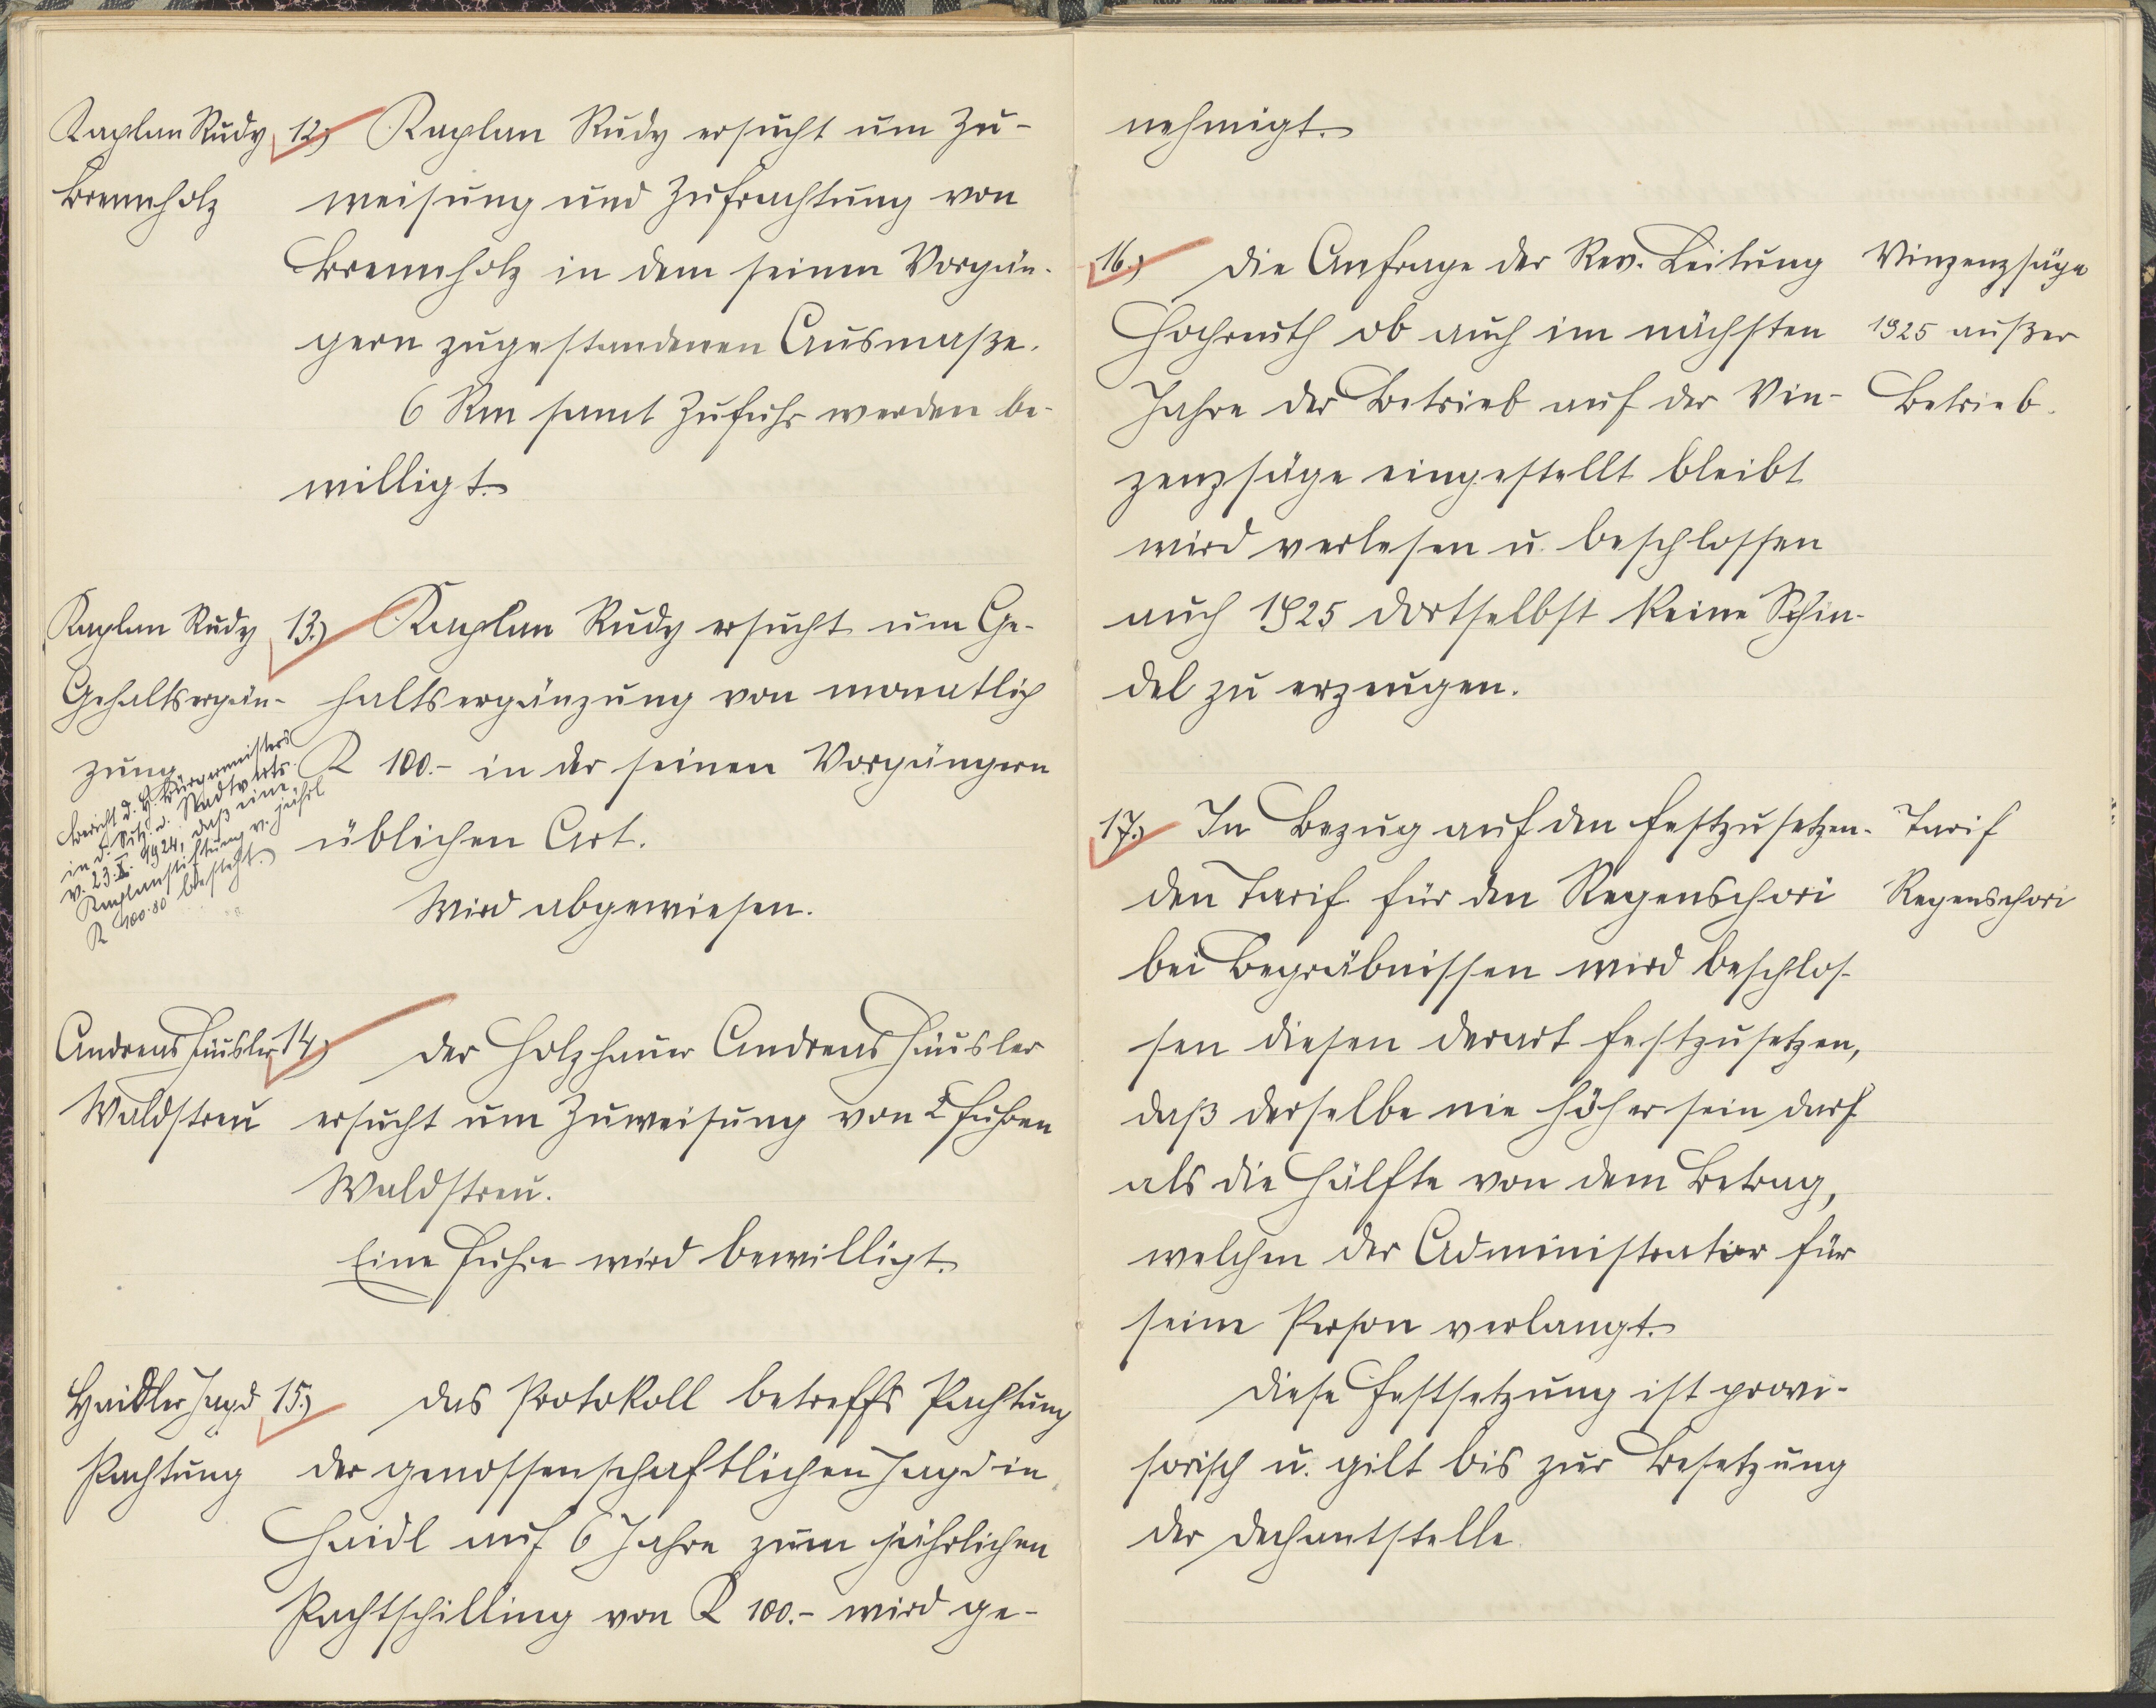 Kaplan Rudy
Brennholz
12.) Kaplan Rudy ersucht um Zu-
weisung und Zufrachtung von
Brennholz in dem seinen Vorgän-
gern zugestandenen Ausmaße.
6 Rm samt Zufuhr werden be-
willigt.
Kaplan Rudy
Gehaltsergän-
zung
Bericht d. H. Bürgermeisters
in d. Sitz. d. Stadtverts.
v. 23.X. 1924, daß eine
Kaplanstiftung v. jährl
K 100.80 besteht.
13.) Kaplan Rudy ersucht um Ge-
haltsergänzung von monatlich
K 100.- in der seinen Vorgängern
üblichen Art.
Wird abgewiesen.
Andreas Häusler
Waldstreu
14.) Der Holzhauer Andreas Häusler
ersucht um Zuweisung von 2 Fuhren
Waldstreu.
Eine Fuhre wird bewilligt.
Haidler Jagd
Pachtung
15.) Das Protokoll betreffs Pachtung
der genossenschaftlichen Jagd in
Haidl auf 6 Jahre zum jährlichen
Pachtschilling von K 100.- wird ge-
nehmigt.
16.) Die Anfrage der Rev. Leitung
Hochreuth ob auch im nächsten
Jahre der Betrieb auf der Vin-
zenzsäge eingestellt bleibt
wird verlesen u. beschlossen
auch 1925 dortselbst keine Schin-
del zu erzeugen.
Vinzenzsäge
1925 außer
Betrieb.
17.) In Bezug auf den festzusetzen-
den Tarif für den Regenschori
bei Begräbnissen wird beschlos-
sen diesen derart festzusetzen,
daß derselbe nie höher sein darf
als die Hälfte von dem Betrag,
welchen der Administrator für
seine Person verlangt.
Diese Festsetzung ist provi-
sorisch u. gilt bis zur Besetzung
der Dechantstelle
Tarif
Regenschori